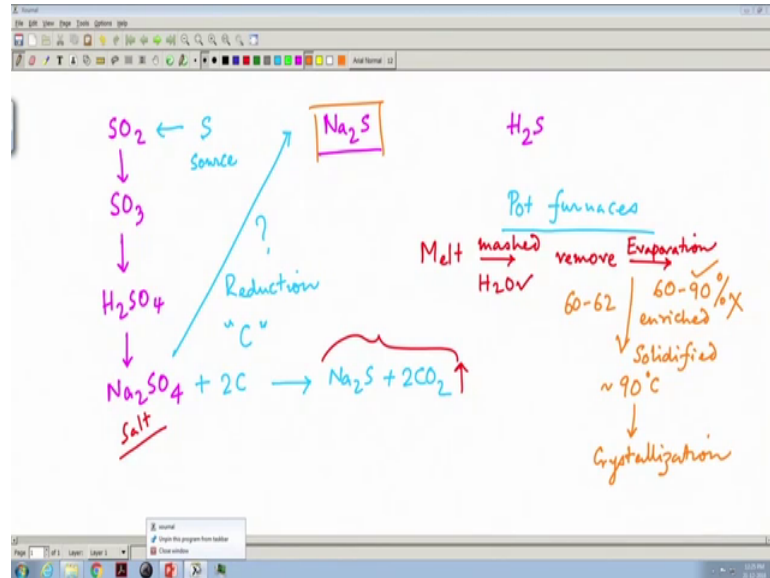 Xournal
File Edit View Page Tools Options Help
Arial Normal 12
SO2 ← S
source
↓
SO3
↓
H2SO4
↓
Na2SO4 + 2C → Na2S + 2CO2 ↑
Salt
?
Reduction
"C"
Na2S
H2S
Pot furnaces
Melt mashed → remove Evaporation →
H2O✓
60-62
60-90% X
enriched
Solidified
~ 90°C
↓
Crystallization
xournal
Unpin this program from taskbar
Close window
Page 1 of 1 Layer: Layer 1